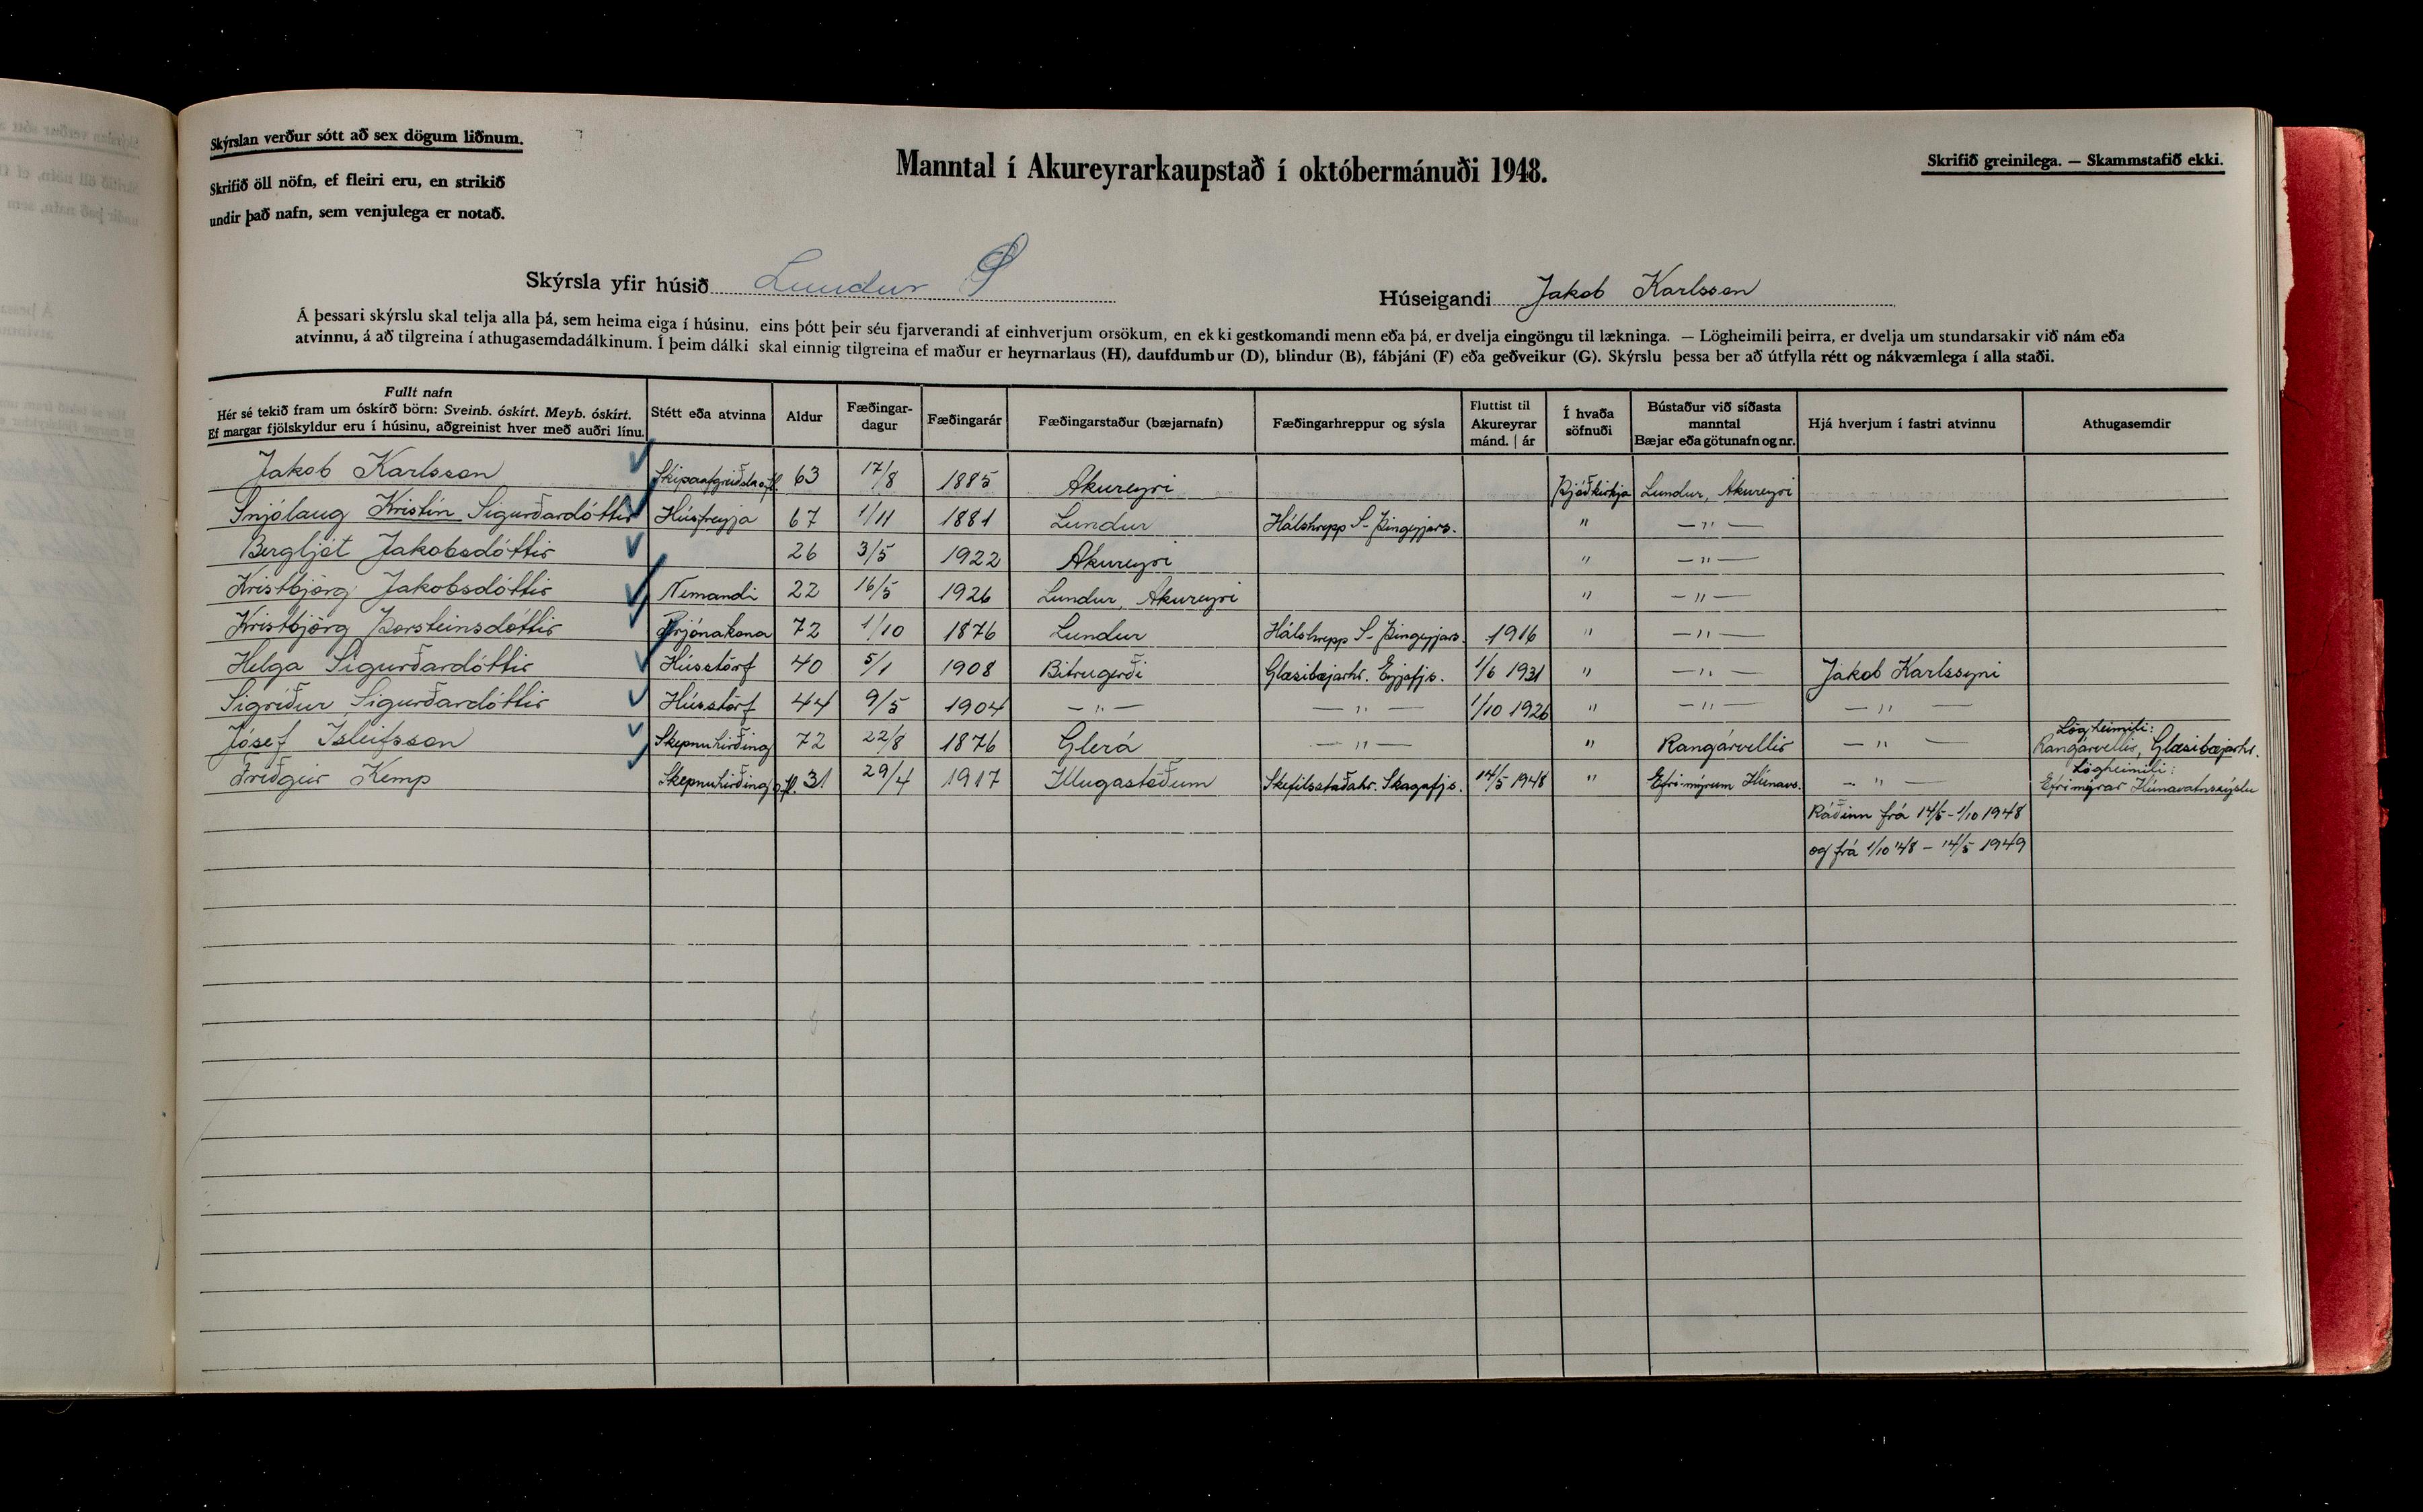 Skýrslan verður sótt að sex dögum liðnum.
Skrifið öll nöfn, ef fleiri eru, en strikið
undir það nafn, sem venjulega er notað.
Manntal í Akureyrarkaupstað í októbermánuði 1948.
Skrifið greinilega. — Skammstafið ekki.
Skýrsla yfir húsið Lundur
Húseigandi Jakob Karlsson
Á þessari skýrslu skal telja alla þá, sem heima eiga í húsinu, eins þótt þeir séu fjarverandi af einhverjum orsökum, en ekki gestkomandi menn eða þá, er dvelja eingöngu til lækninga. — Lögheimili þeirra, er dvelja um stundarsakir við nám eða
atvinnu, á að tilgreina í athugasemdadálkinum. Í þeim dálki skal einnig tilgreina ef maður er heyrnarlaus (H), daufdumbur (D), blindur (B), fábjáni (F) eða geðveikur (G). Skýrslu þessa ber að útfylla rétt og nákvæmlega í alla staði.
Fullt nafn
Hér sé tekið fram um óskírð börn: Sveinb. óskírt. Meyb. óskírt.
Ef margar fjölskyldur eru í húsinu, aðgreinist hver með auðri línu.
Stétt eða atvinna
Aldur
Fæðingar-
dagur
Fæðingarár
Fæðingarstaður (bæjarnafn)
Fæðingarhreppur og sýsla
Fluttist til
Akureyrar
mánd. | ár
Í hvaða
söfnuði
Bústaður við síðasta
manntal
Bæjar eða götunafn og nr.
Hjá hverjum í fastri atvinnu
Athugasemdir
Jakob Karlsson Skipaafgreiðsla o.fl. 63 17/8 1885 Akureyri Þjóðkirkja Lundur, Akureyri
Snjólaug Kristín Sigurðardóttir Húsfreyja 67 1/11 1881 Lundur Hálshrepp S-Þingeyjars. " —"—
Bergljót Jakobsdóttir 26 3/5 1922 Akureyri " —"—
Kristbjörg Jakobsdóttir Nemandi 22 16/5 1926 Lundur, Akureyri " —"—
Kristbjörg Þorsteinsdóttir Prjónakona 72 1/10 1876 Lundur Hálshrepp S-Þingeyjars. 1916 " —"—
Helga Sigurðardóttir Hússtörf 40 5/1 1908 Bitrugerði Glæsibæjarhr. Eyjafjs. 1/6 1931 " —"— Jakob Karlssyni
Sigríður Sigurðardóttir Hússtörf 44 9/5 1904 —"— —"— 1/10 1926 " —"— —"—
Jósef Ísleifsson Skepnuhirðing 72 22/8 1876 Glerá —"— " Rangárvellir —"— Lögheimili:
Rangárvellir, Glæsibæjarhr.
Friðgeir Kemp Skepnuhirðing o.fl. 31 29/4 1917 Illugastöðum Skefilsstaðahr. Skagafjs. 14/5 1948 " Efri-mýrum Húnavs. —"— Lögheimili:
Efrimýrar Húnavatnssýslu
Ráðinn frá 14/5 - 1/10 1948
og frá 1/10 '48 — 14/5 1949